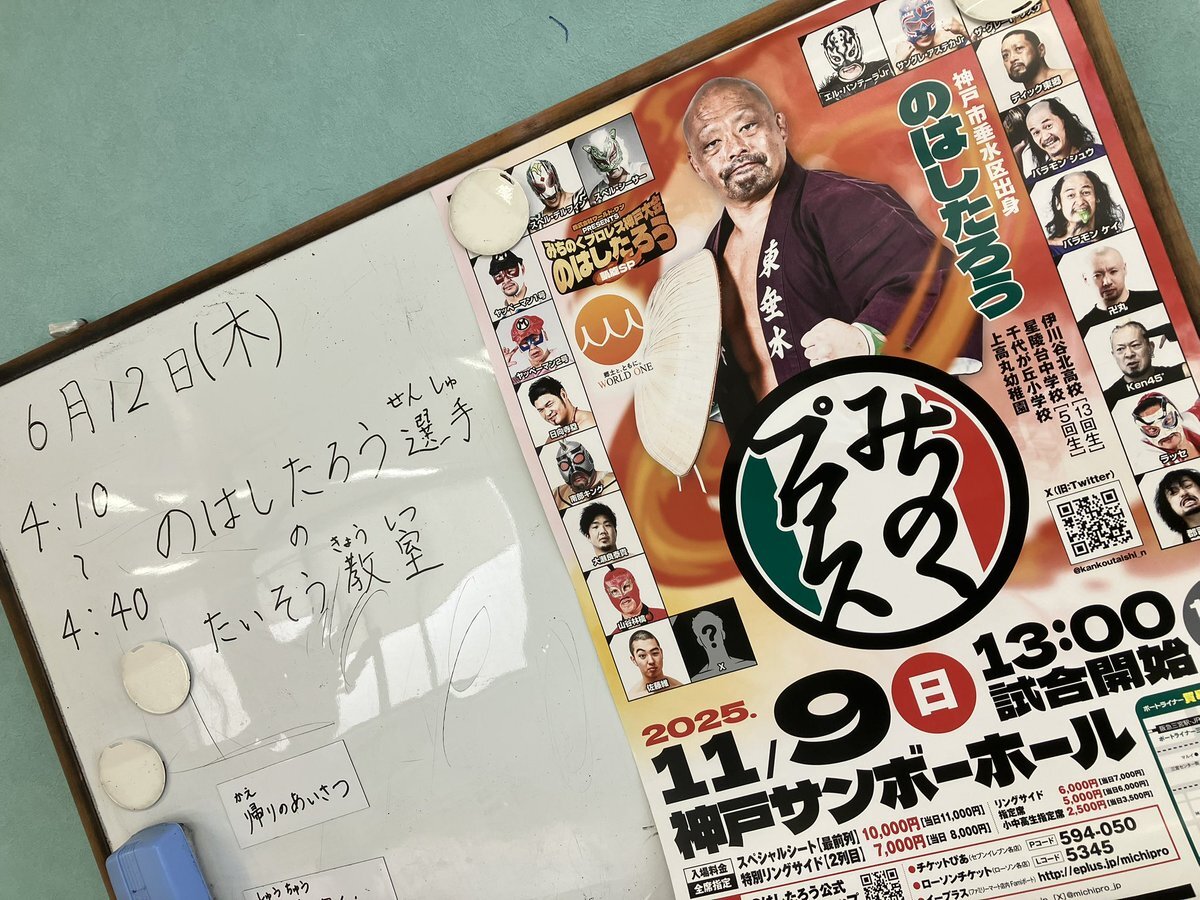 6月12日(木)
4:10
〜
4:40
せんしゅ
のはしたろう選手
の
きょうしつ
たいそう教室
かえ
帰りのあいさつ
しゅうちゅう
エル・パンテーラJr
サングレ・アステカJr
ディック東郷
バラモンシュウ
バラモンケイ
卍丸
Ken45°
ラッセ
スペル・デルフィン
スペル・シーサー
ヤッペーマン1号
ヤッペーマン2号
日向寺塁
南部キング
大瀬良泰貴
山谷林檎
佐藤雄
?
X
PRESENTS
みちのくプロレス神戸大会
のはしたろう
凱旋SP
郷土と、ともに
WORLD ONE
神戸市垂水区出身
のはしたろう
東垂水
伊川谷北高校[13回生]
星陵台中学校
千代が丘小学校[5回生]
上高丸幼稚園
X(旧:Twitter)
@kankoutaishi_n
みちのく
プロレス
2025.
11/9 日 13:00
試合開始
神戸サンボーホール
入場料金
全席指定
スペシャルシート[最前列] 10,000円[当日11,000円]
特別リングサイド[2列目] 7,000円[当日 8,000円]
リングサイド 6,000円[当日7,000円]
指定席 5,000円[当日6,000円]
小中高生指定席 2,500円[当日3,500円]
●チケットぴあ(セブンイレブン各店) Pコード 594-050
●ローソンチケット(ローソン各店) Lコード 5345
●イープラス(ファミリーマート店内Famiポート) http://eplus.jp/michipro
のはしたろう公式
[X]@michipro_jp
ポートライナー